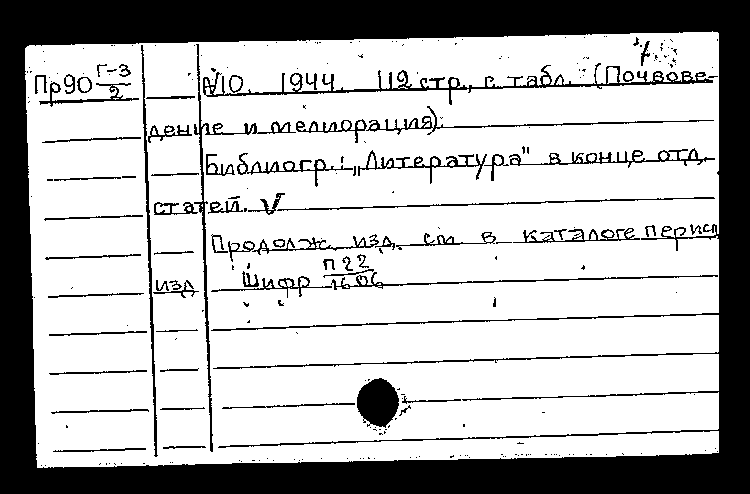 Пр90 Г-3/2 №10. 1944. 112 стр., с табл. (Почвове-
дение и мелиорация).
Библиогр.: „Литература" в конце отд.
статей. V
Продолж. изд. см в каталоге период
изд Шифр П22/1606